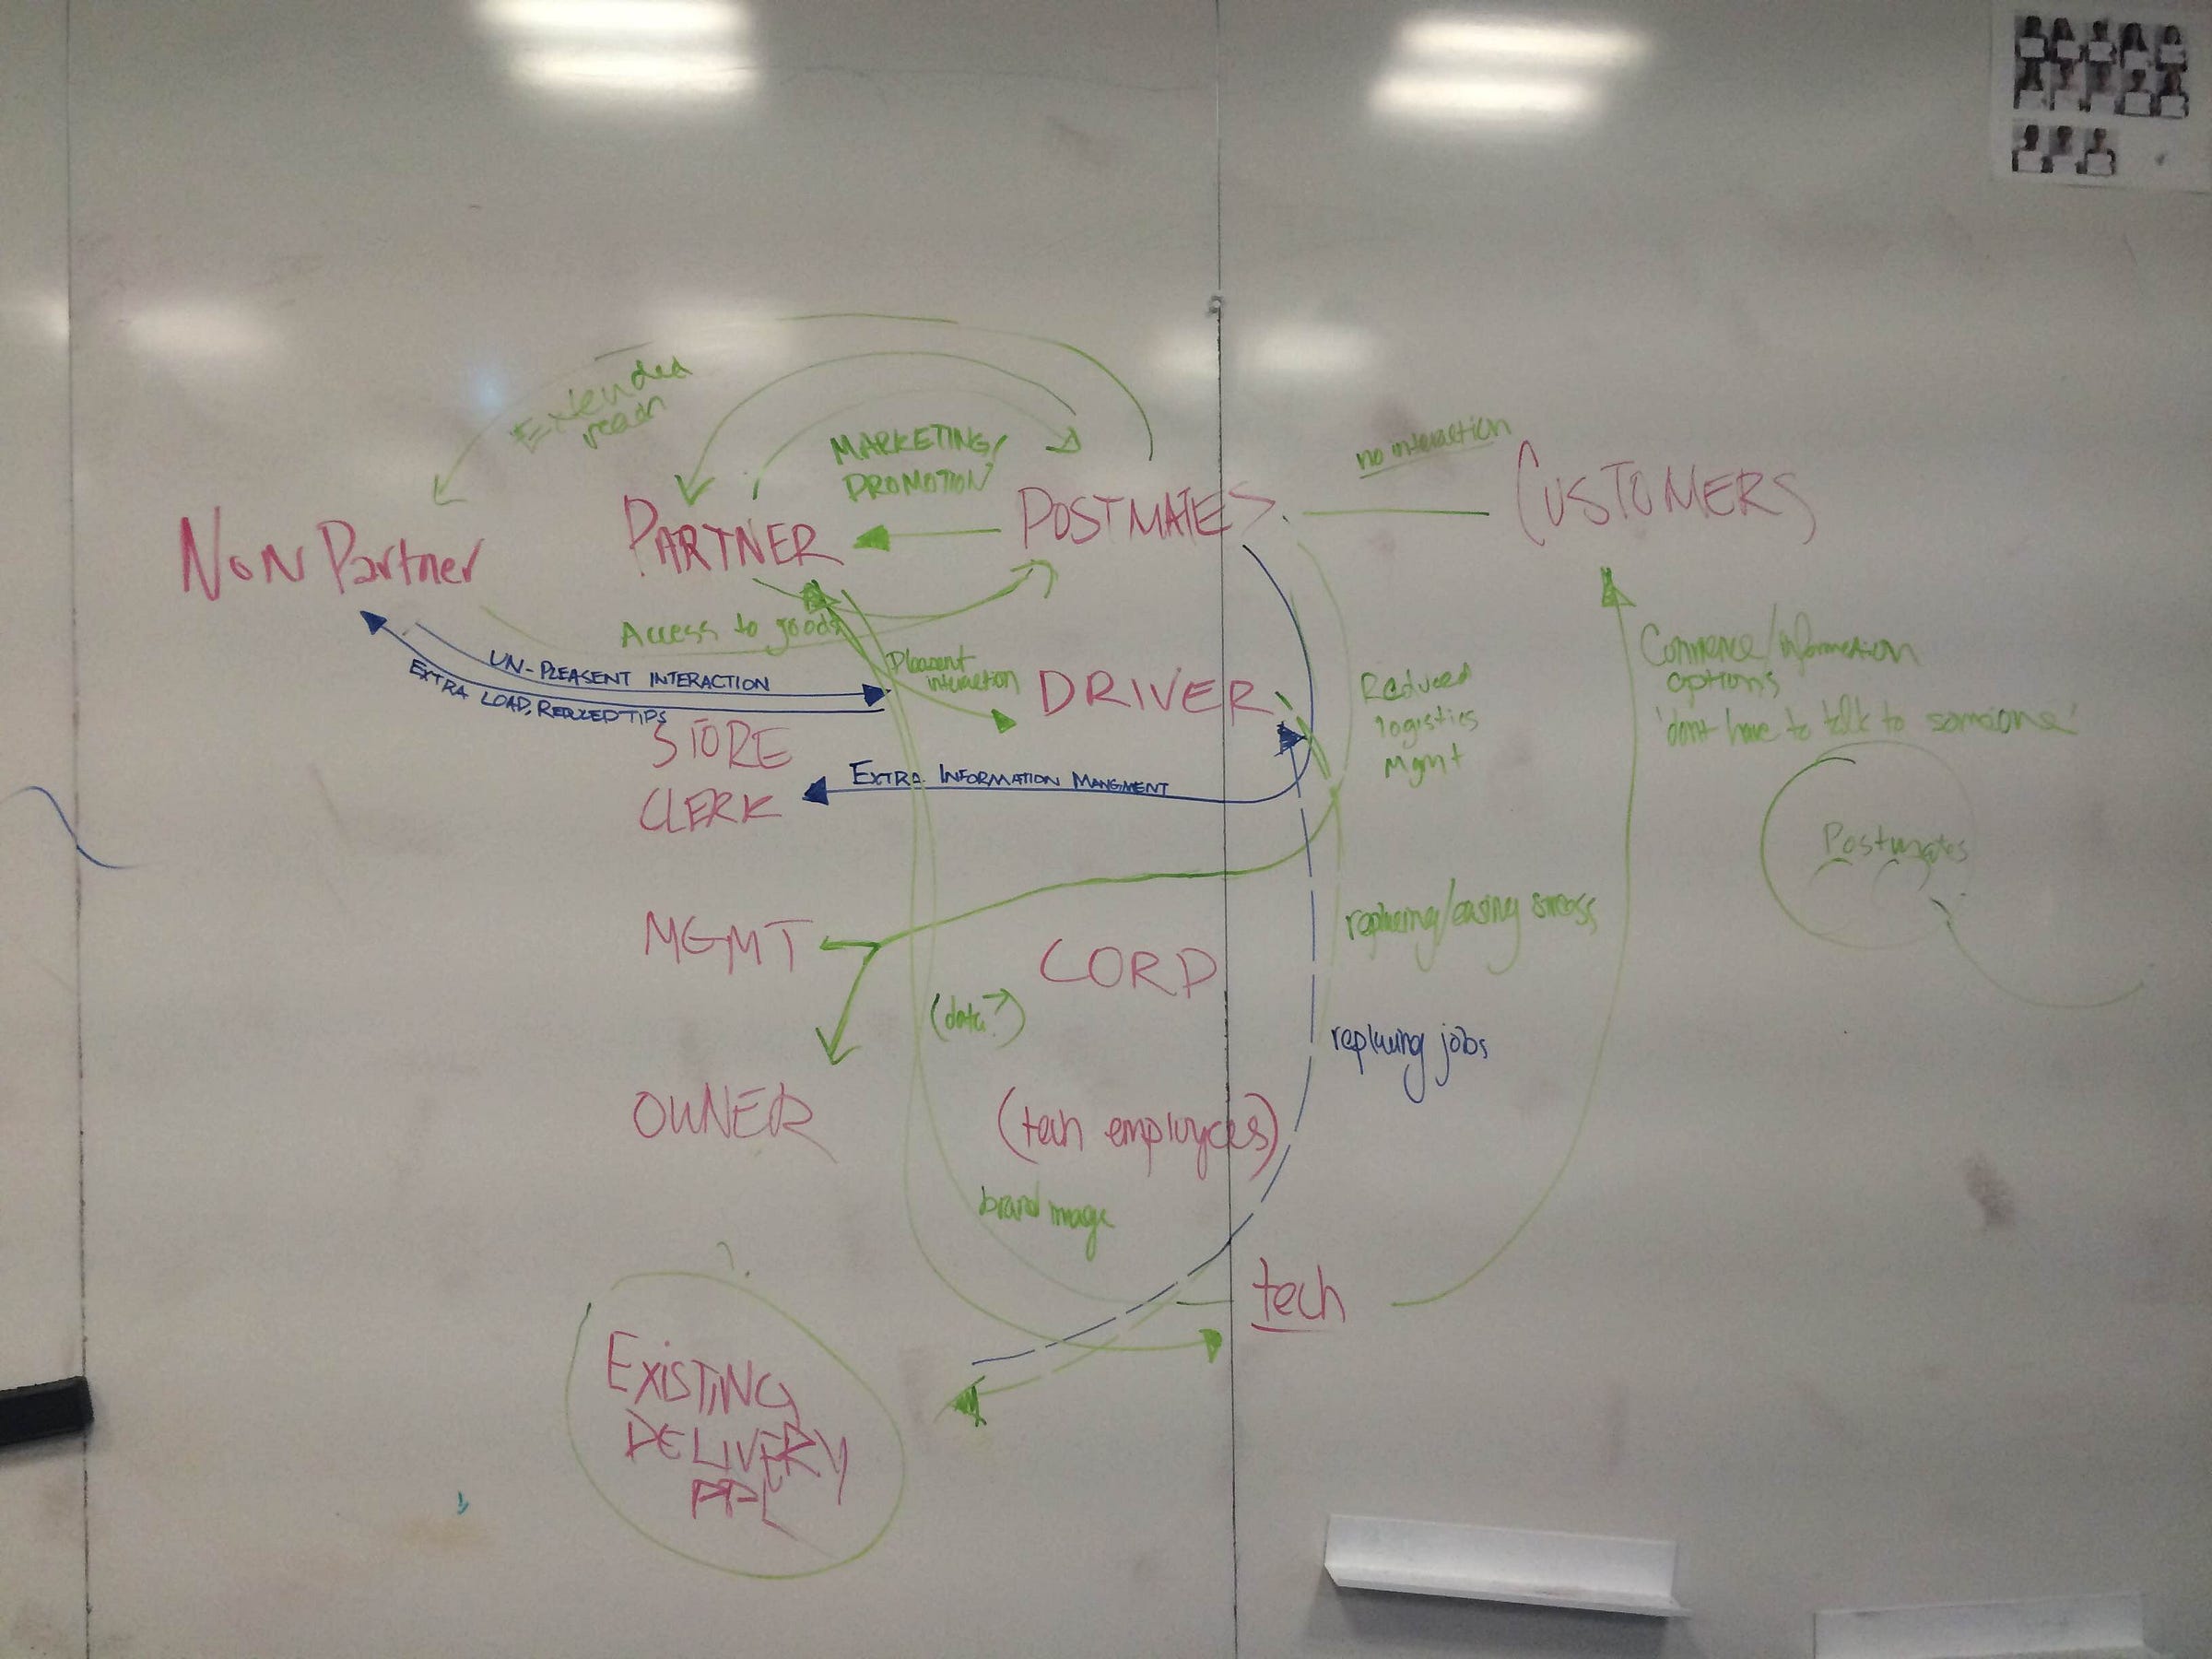 Extended
reach
MARKETING/
PROMOTION
no interaction
NON Partner
PARTNER
POSTMATES
CUSTOMERS
Access to goods
UN-PLEASENT INTERACTION
EXTRA LOAD, REDUCED TIPS
Pleasent
interaction
DRIVER
Reduced
logistics
Mgmt
options
'dont have to talk to someone'
STORE
CLERK
EXTRA INFORMATION MANGMENT
Postmates
MGMT
CORP
replacing/easing stress
(data?)
replacing jobs
OWNER
(tech employees)
brand image
?
tech
EXISTING
DELIVERY
PPL